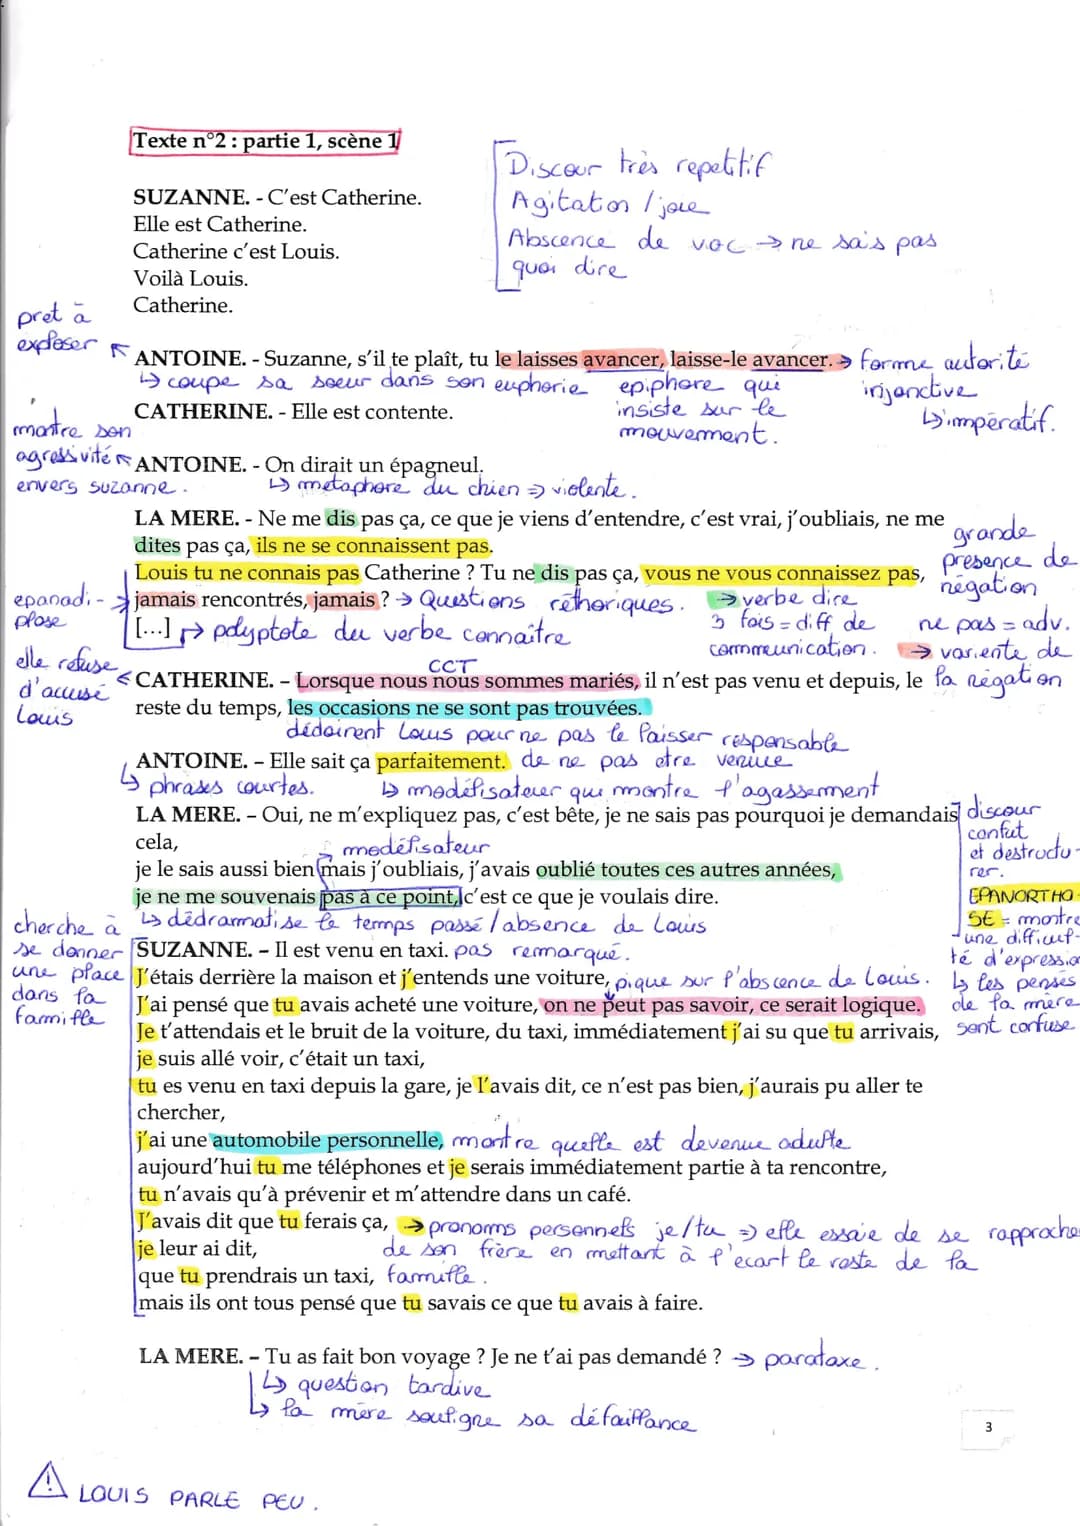 Texte n°2 : partie 1, scène 1
Discour très repetitif
Agitation / joie
Abscence de voc → ne sais pas
quoi dire
SUZANNE. - C'est Catherine.
Elle est Catherine.
Catherine c'est Louis.
Voilà Louis.
Catherine.
pret à
exploser
ANTOINE. - Suzanne, s'il te plaît, tu le laisses avancer, laisse-le avancer. → forme autorité
injonctive
↳ impératif.
↳ coupe sa soeur dans son euphorie
epiphore qui
insiste sur le
mouvement.
CATHERINE. - Elle est contente.
montre son
agressivité
envers suzanne.
ANTOINE. - On dirait un épagneul.
↳ métaphore du chien => violente.
LA MERE. - Ne me dis pas ça, ce que je viens d'entendre, c'est vrai, j'oubliais, ne me
dites pas ça, ils ne se connaissent pas.
Louis tu ne connais pas Catherine ? Tu ne dis pas ça, vous ne vous connaissez pas,
jamais rencontrés, jamais ? → Questions réthoriques.
[...] → polyptote du verbe connaitre
epanadi-
plose
grande
presence de
négation
ne pas = adv.
→ variente de
la négation
→ verbe dire
3 fois = diff de
communication.
elle refuse
d'accusé
Louis
CCT
CATHERINE. – Lorsque nous nous sommes mariés, il n'est pas venu et depuis, le
reste du temps, les occasions ne se sont pas trouvées.
dédoirent Louis pour ne pas le laisser responsable
de ne pas etre venue
ANTOINE. – Elle sait ça parfaitement.
↳ phrases courtes.
↳ modélisateur qui montre l'agassement
LA MERE. – Oui, ne m'expliquez pas, c'est bête, je ne sais pas pourquoi je demandais
cela,
modélisateur
je le sais aussi bien mais j'oubliais, j'avais oublié toutes ces autres années,
je ne me souvenais pas à ce point, c'est ce que je voulais dire.
↳ dédramatise le temps passé / absence de Louis
discour
confut
et destructu-
rer.
EPANORTHO-
SE = montre
une difficul-
té d'expression
↳ les pensés
de la mère
sont confuse
cherche à
se donner
une place
dans la
famille
SUZANNE. – Il est venu en taxi. pas remarqué.
J'étais derrière la maison et j'entends une voiture,
pique sur l'abscence de Louis.
J'ai pensé que tu avais acheté une voiture, on ne peut pas savoir, ce serait logique.
Je t'attendais et le bruit de la voiture, du taxi, immédiatement j'ai su que tu arrivais,
je suis allé voir, c'était un taxi,
tu es venu en taxi depuis la gare, je l'avais dit, ce n'est pas bien, j'aurais pu aller te
chercher,
j'ai une automobile personnelle, montre quelle est devenue adulte
aujourd'hui tu me téléphones et je serais immédiatement partie à ta rencontre,
tu n'avais qu'à prévenir et m'attendre dans un café.
J'avais dit que tu ferais ça, → pronoms personnels je/tu => elle essaie de se rapprocher
je leur ai dit, de son frère en mettant à l'écart le reste de la
que tu prendrais un taxi, famille.
mais ils ont tous pensé que tu savais ce que tu avais à faire.
LA MERE. – Tu as fait bon voyage ? Je ne t'ai pas demandé ? → parataxe.
↳ question tardive
↳ la mère souligne sa défaillance
3
! LOUIS PARLE PEU.